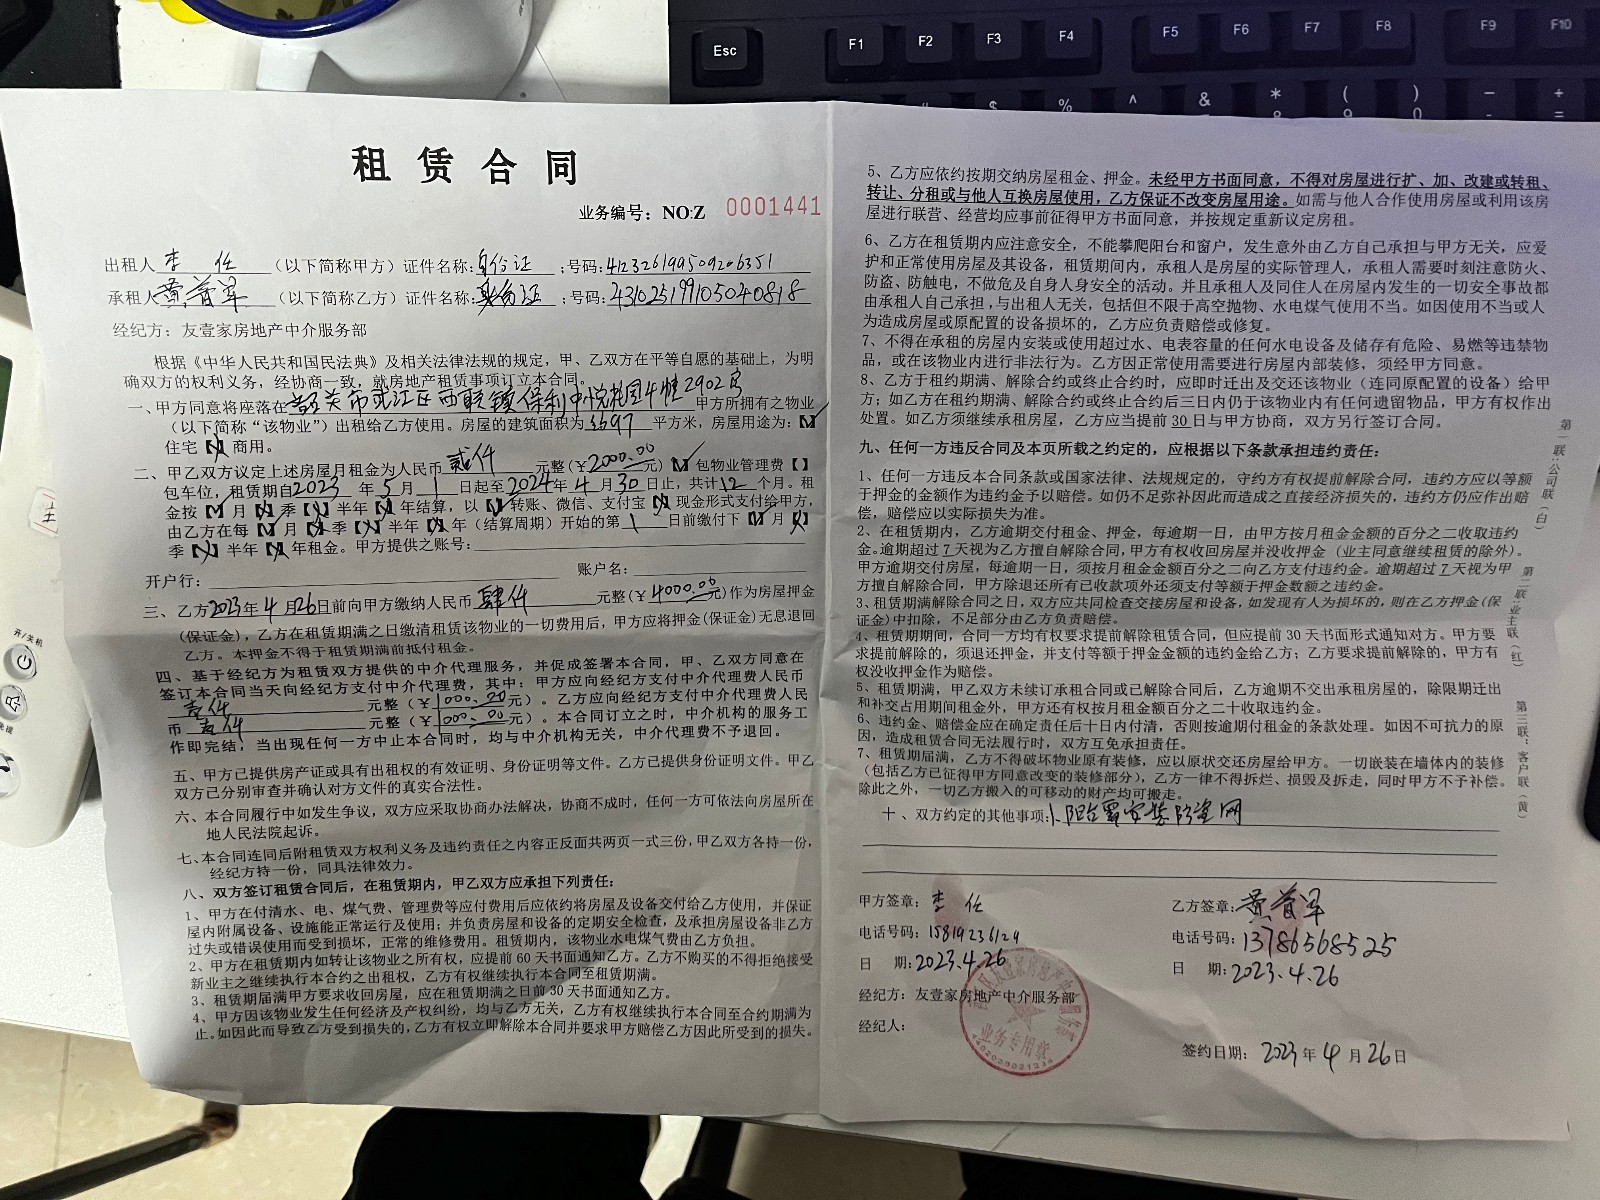 Esc
F1
F2
F3
F4
F5
F6
F7
F8
F9
F10
$
%
^
&
*
8
(
9
)
0
-
+
=
租赁合同
业务编号：NO:Z 0001441
出租人李 任（以下简称甲方）证件名称：身份证；号码：412326199509206351
承租人黄 军（以下简称乙方）证件名称：身份证；号码：431025199105040818
经纪方：友壹家房地产中介服务部
根据《中华人民共和国民法典》及相关法律法规的规定，甲、乙双方在平等自愿的基础上，为明
确双方的权利义务，经协商一致，就房地产租赁事项订立本合同。
一、甲方同意将座落在韶关市武江区西联镇保利中悦花园4幢2902房 甲方所拥有之物业
（以下简称“该物业”）出租给乙方使用。房屋的建筑面积为 平方米，房屋用途为：【✓】
住宅【】商用。
二、甲乙双方议定上述房屋月租金为人民币贰仟元整（￥2000.00元）【✓】包物业管理费【】
包车位，租赁期自2023年5月1日起至2024年4月30日止，共计12个月。租
金按【】月【】季【】半年【】年结算，以【】转账、微信、支付宝【】现金形式支付给甲方，
由乙方在每【】月【】季【】半年【】年（结算周期）开始的第1日前缴付下【】月【】
季【】半年【】年租金。甲方提供之账号：
开户行： 账户名：
三、乙方2023年4月26日前向甲方缴纳人民币肆仟元整（￥4000.00元）作为房屋押金
（保证金），乙方在租赁期满之日缴清租赁该物业的一切费用后，甲方应将押金（保证金）无息退回
乙方。本押金不得于租赁期满前抵付租金。
四、基于经纪方为租赁双方提供的中介代理服务，并促成签署本合同，甲、乙双方同意在
签订本合同当天向经纪方支付中介代理费，其中：甲方应向经纪方支付中介代理费人民币
壹仟元整（￥1000.00元）。乙方应向经纪方支付中介代理费人民
币壹仟元整（￥1000.00元）。本合同订立之时，中介机构的服务工
作即完结，当出现任何一方中止本合同时，均与中介机构无关，中介代理费不予退回。
五、甲方已提供房产证或具有出租权的有效证明、身份证明等文件。乙方已提供身份证明文件。甲乙
双方已分别审查并确认对方文件的真实合法性。
六、本合同履行中如发生争议，双方应采取协商办法解决，协商不成时，任何一方可依法向房屋所在
地人民法院起诉。
七、本合同连同后附租赁双方权利义务及违约责任之内容正反面共两页一式三份，甲乙双方各持一份，
经纪方持一份，同具法律效力。
八、双方签订租赁合同后，在租赁期内，甲乙双方应承担下列责任：
1、甲方在付清水、电、煤气费、管理费等应付费用后应依约将房屋及设备交付给乙方使用，并保证
屋内附属设备、设施能正常运行及使用；并负责房屋和设备的定期安全检查，及承担房屋设备非乙方
过失或错误使用而受到损坏，正常的维修费用。租赁期内，该物业水电煤气费由乙方负担。
2、甲方在租赁期内如转让该物业之所有权，应提前60天书面通知乙方。乙方不购买的不得拒绝接受
新业主之继续执行本合约之出租权，乙方有权继续执行本合同至租赁期满。
3、租赁期届满甲方要求收回房屋，应在租赁期满之日前30天书面通知乙方。
4、甲方因该物业发生任何经济及产权纠纷，均与乙方无关，乙方有权继续执行本合同至合约期满为
止。如因此而导致乙方受到损失的，乙方有权立即解除本合同并要求甲方赔偿乙方因此所受到的损失。
5、乙方应依约按期交纳房屋租金、押金。未经甲方书面同意，不得对房屋进行扩、加、改建或转租、
转让、分租或与他人互换房屋使用，乙方保证不改变房屋用途。如需与他人合作使用房屋或利用该房
屋进行联营、经营均应事前征得甲方书面同意，并按规定重新议定房租。
6、乙方在租赁期内应注意安全，不能攀爬阳台和窗户，发生意外由乙方自己承担与甲方无关，应爱
护和正常使用房屋及其设备，租赁期间内，承租人是房屋的实际管理人，承租人需要时刻注意防火、
防盗、防触电，不做危及自身人身安全的活动。并且承租人及同住人在房屋内发生的一切安全事故都
由承租人自己承担，与出租人无关，包括但不限于高空抛物、水电煤气使用不当。如因使用不当或人
为造成房屋或原配置的设备损坏的，乙方应负责赔偿或修复。
7、不得在承租的房屋内安装或使用超过水、电表容量的任何水电设备及储存有危险、易燃等违禁物
品，或在该物业内进行非法行为。乙方因正常使用需要进行房屋内部装修，须经甲方同意。
8、乙方于租约期满、解除合约或终止合约时，应即时迁出及交还该物业（连同原配置的设备）给甲
方；如乙方在租约期满、解除合约或终止合约后三日内仍于该物业内有任何遗留物品，甲方有权作出
处置。如乙方须继续承租房屋，乙方应当提前30日与甲方协商，双方另行签订合同。
九、任何一方违反合同及本页所载之约定的，应根据以下条款承担违约责任：
1、任何一方违反本合同条款或国家法律、法规规定的，守约方有权提前解除合同，违约方应以等额
于押金的金额作为违约金予以赔偿。如仍不足弥补因此而造成之直接经济损失的，违约方仍应作出赔
偿，赔偿应以实际损失为准。
2、在租赁期内，乙方逾期交付租金、押金，每逾期一日，由甲方按月租金金额的百分之二收取违约
金。逾期超过7天视为乙方擅自解除合同，甲方有权收回房屋并没收押金（业主同意继续租赁的除外）。
甲方逾期交付房屋，每逾期一日，须按月租金金额百分之二向乙方支付违约金。逾期超过7天视为甲
方擅自解除合同，甲方除退还所有已收款项外还须支付等额于押金数额之违约金。
3、租赁期满解除合同之日，双方应共同检查交接房屋和设备，如发现有人为损坏的，则在乙方押金（保
证金）中扣除，不足部分由乙方负责赔偿。
4、租赁期期间，合同一方均有权要求提前解除租赁合同，但应提前30天书面形式通知对方。甲方要
求提前解除的，须退还押金，并支付等额于押金金额的违约金给乙方；乙方要求提前解除的，甲方有
权没收押金作为赔偿。
5、租赁期满，甲乙双方未续订承租合同或已解除合同后，乙方逾期不交出承租房屋的，除限期迁出
和补交占用期间租金外，甲方还有权按月租金额百分之二十收取违约金。
6、违约金、赔偿金应在确定责任后十日内付清，否则按逾期付租金的条款处理。如因不可抗力的原
因，造成租赁合同无法履行时，双方互免承担责任。
7、租赁期届满，乙方不得破坏物业原有装修，应以原状交还房屋给甲方。一切嵌装在墙体内的装修
（包括乙方已征得甲方同意改变的装修部分），乙方一律不得拆烂、损毁及拆走，同时甲方不予补偿。
除此之外，一切乙方搬入的可移动的财产均可搬走。
十、双方约定的其他事项：1、阳台需安装防盗网
第一联：公司联（白）
第二联：业主联（红）
第三联：客户联（黄）
甲方签章：李 任
电话号码：15819236129
日 期：2023.4.26
经纪方：友壹家房地产中介服务部
经纪人：
乙方签章：黄 军
电话号码：13786568525
日 期：2023.4.26
签约日期：2023年4月26日
业务专用章
开/关机